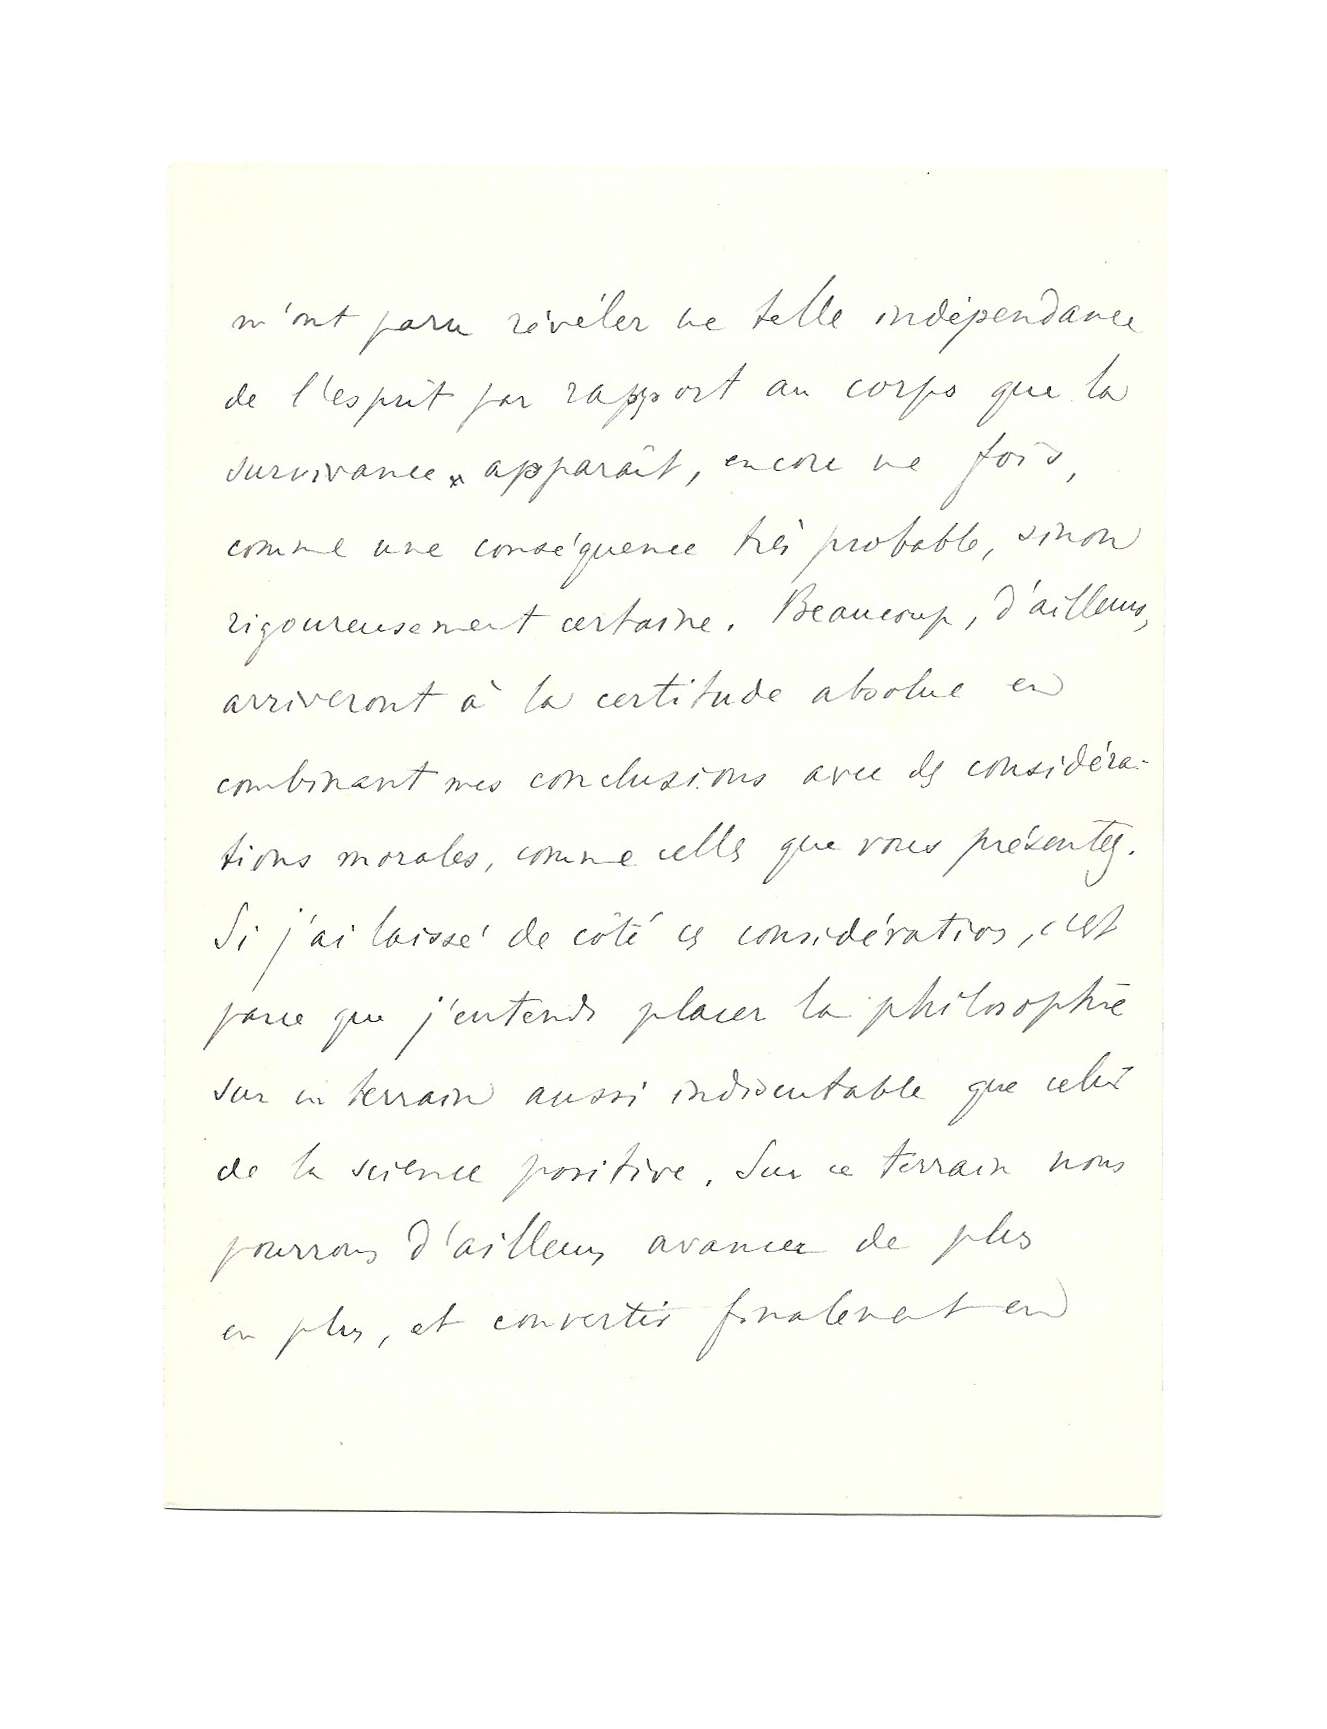 m'ont paru révéler une telle indépendance
de l'esprit par rapport au corps que la
survivance apparaît, encore une fois,
comme une conséquence très probable, sinon
rigoureusement certaine. Beaucoup, d'ailleurs,
arriveront à la certitude absolue en
combinant mes conclusions avec des considéra-
tions morales, comme celles que vous présentez.
Si j'ai laissé de côté ces considérations, c'est
parce que j'entends placer la philosophie
sur un terrain aussi indiscutable que celui
de la science positive. Sur ce terrain nous
pourrons d'ailleurs avancer de plus
en plus, et convertir finalement en